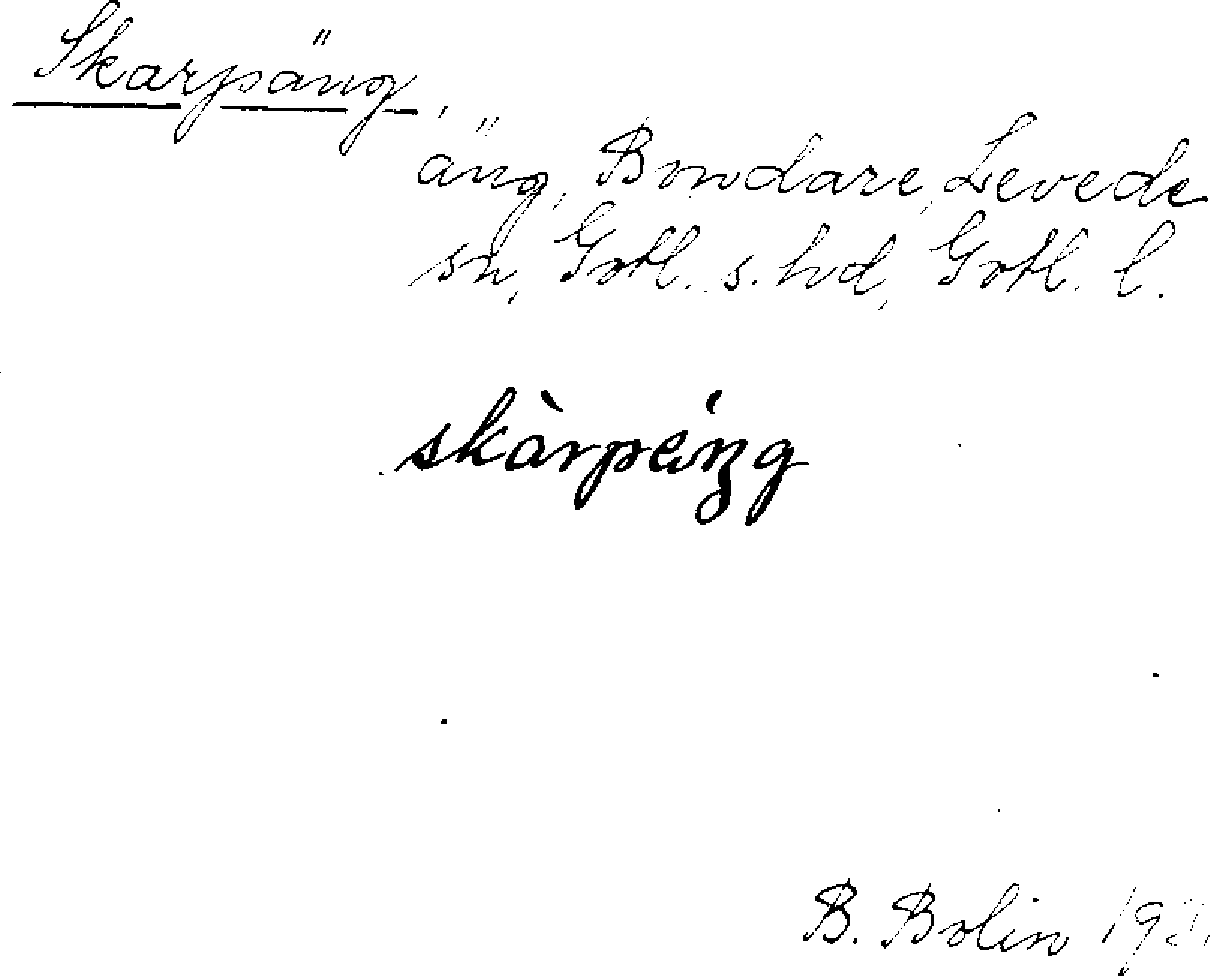 Skarpäng,
äng, Bondare, Levede
sn, Gotl. s. hd, Gotl. l.
skàrpéŋg
B. Bolin